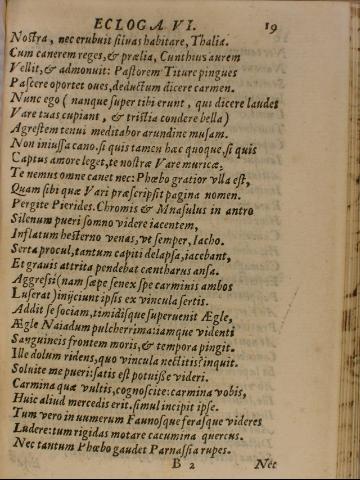 ECLOGA VI. 19
Nostra, nec erubuit siluas habitare, Thalia.
Cum canerem reges, & prælia, Cunthius aurem
Vellit, & admonuit: Pastorem Titure pingues
Pascere oportet oues, deductum dicere carmen.
Nunc ego (nanque super tibi erunt, qui dicere laudes
Vare tuas cupiant, & tristia condere bella)
Agrestem tenui meditabor arundine musam.
Non iniussa cano. si quis tamen hæc quoque, si quis
Captus amore leget, te nostræ Vare muricæ,
Te nemus omne canet nec: Phœbo gratior vlla est,
Quam sibi quæ Vari præscripsit pagina nomen.
Pergite Pierides. Chromis & Mnasulus in antro
Silenum pueri somno videre iacentem,
Inflatum hesterno venas, vt semper, Iacho.
Serta procul, tantum capiti delapsa, iacebant,
Et grauis attrita pendebat cantharus ansa.
Aggressi (nam sæpe senex spe carminis ambos
Luserat) inijciunt ipsis ex vincula sertis.
Addit se sociam, timidisque superuenit Ægle,
Ægle Naiadum pulcherrima: iamque videnti
Sanguineis frontem moris, & tempora pingit.
Ille dolum ridens, quo vincula nectitis? inquit.
Soluite me pueri: satis est potuisse videri.
Carmina quæ vultis, cognoscite: carmina vobis,
Huic aliud mercedis erit. simul incipit ipse.
Tum vero in numerum Faunosque ferasque videres
Ludere: tum rigidas motare cacumina quercus.
Nec tantum Phœbo gaudet Parnassia rupes.
B 2 Nec